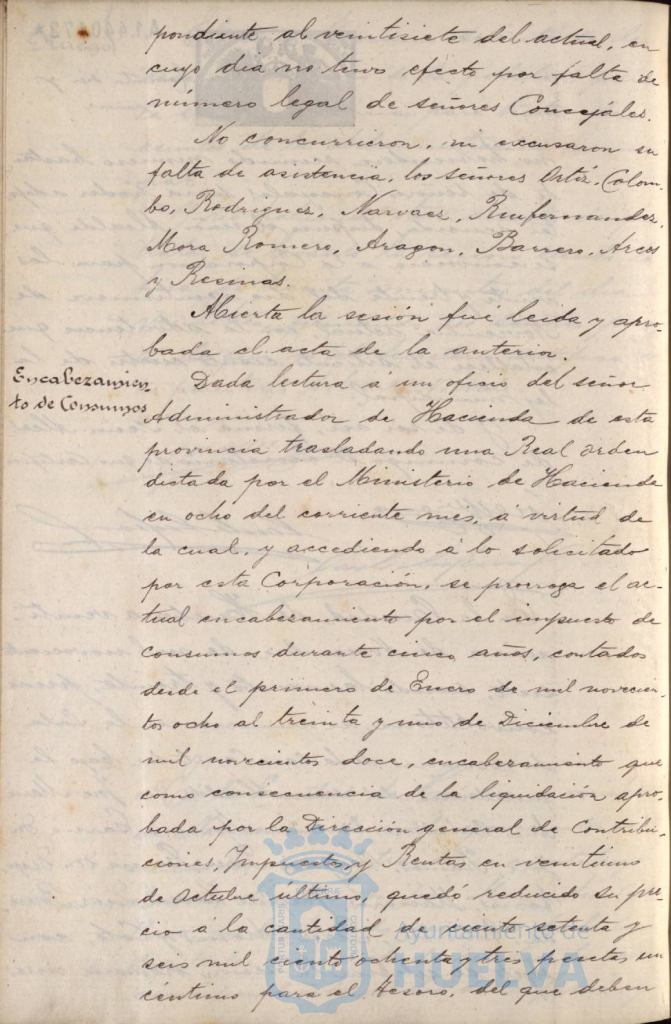 pondiente al veintisiete del actual, en
cuyo dia no tuvo efecto por falta de
número legal de señores Concejáles.
No concurrieron, ni excusaron su
falta de asistencia, los señores Ortiz, Colom-
bo, Rodriguez, Narvaez, Ruifernandez,
Mora Romero, Aragon, Barrero, Arcos
y Recinas.
Abierta la sesión fué leida y apro-
bada el acta de la anterior.
Encabezamien-
to de Consumos
Dada lectura á un oficio del señor
Administrador de Hacienda de esta
provincia trasladando una Real orden
dictada por el Ministerio de Hacienda
en ocho del corriente mes, á virtud de
la cual, y accediendo á lo solicitado
por esta Corporación, se prorroga el ac-
tual encabezamiento por el impuesto de
consumos durante cinco años, contados
desde el primero de Enero de mil novecien-
tos ocho al treinta y uno de Diciembre de
mil novecientos doce, encabezamiento que
como consecuencia de la liquidación apro-
bada por la Dirección general de Contribu-
ciones, Impuestos, y Rentas en veintiuno
de Octubre último, quedó reducido su pre-
cio á la cantidad de ciento setenta y
seis mil ciento ochenta y tres pesetas un
céntimo para el Tesoro, del que deben
Ayuntamiento de
HUELVA